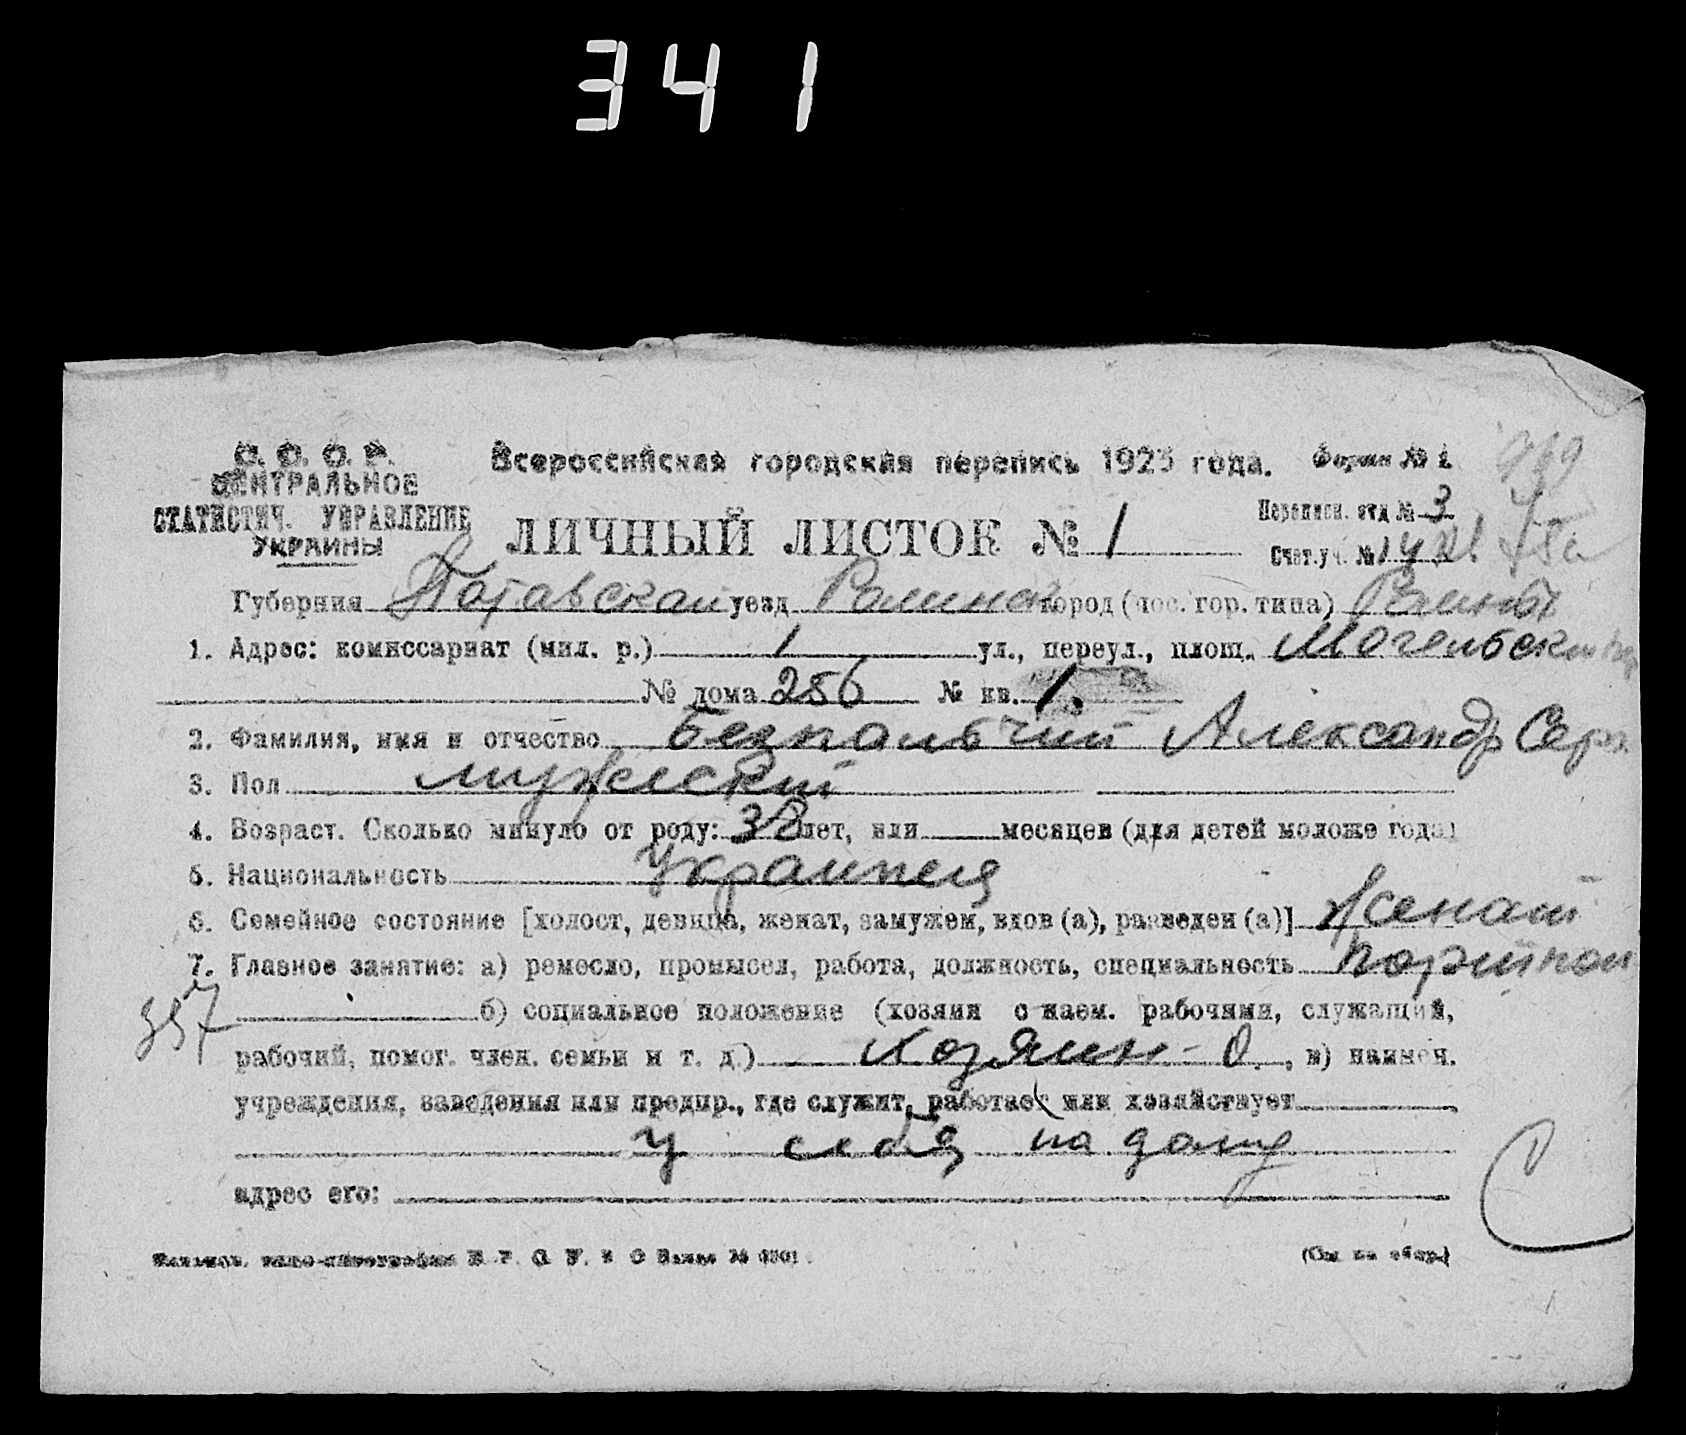 341
С. С. С. Р. Всероссийская городская перепись 1923 года. Форма № 1.
ЦЕНТРАЛЬНОЕ
СТАТИСТИЧ. УПРАВЛЕНИЕ
УКРАИНЫ
ЛИЧНЫЙ ЛИСТОК № 1
Переписн. отд № 3
Счет. уч. №
Губерния Полтавская уезд Роменск город (пос. гор. типа)
1. Адрес: комиссариат (мил. р.) 1 ул., переул., площ.
№ дома 286 № кв. 1.
2. Фамилия, имя и отчество Безпальчий Александр Серг
3. Пол мужеский
4. Возраст. Сколько минуло от роду: 38 лет, или месяцев (для детей моложе года)
5. Национальность Украинец
6. Семейное состояние [холост, девица, женат, замужем, вдов (а), разведен (а)] Женат
7. Главное занятие: а) ремесло, промысел, работа, должность, специальность Портной
357
б) социальное положение (хозяин с наем. рабочими, служащий,
рабочий, помог. член. семьи и т. д.) Хозяин - О., в) наимен.
учреждения, заведения или предпр., где служит, работает или хозяйствует
у себя на дому
адрес его:
(См на обор.)